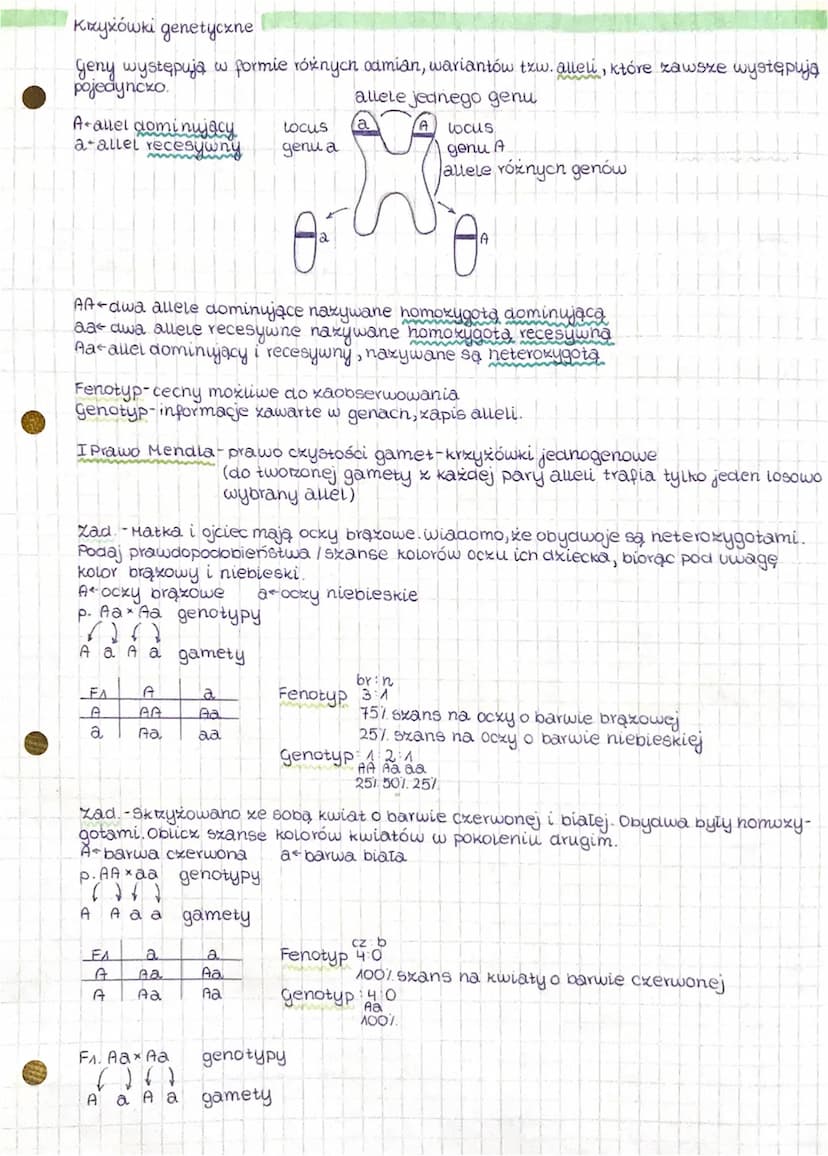 Krzyżówki genetyczne
Geny występują w formie różnych odmian, wariantów tzw. alleli, które zawsze występują
pojedynczo.
allele jednego genu
A-allel dominujący
a-allel recesywny
locus
genu a
a
A
locus
genu A
allele różnych genów
a
A
AA←dwa allele dominujące nazywane homozygotą dominującą
aa← dwa allele recesywne nazywane homozygotą recesywną
Aa←allel dominujący i recesywny, nazywane są heterozygotą
Fenotyp-cechy możliwe do zaobserwowania
Genotyp-informacje zawarte w genach, zapis alleli.
I Prawo Mendla-prawo czystości gamet-krzyżówki jednogenowe
(do tworzonej gamety z każdej pary alleli trafia tylko jeden losowo
wybrany allel)
Zad.-Matka i ojciec mają oczy brązowe. wiadomo, że obydwoje są heterozygotami.
Podaj prawdopodobieństwa / szanse kolorów oczu ich dziecka, biorąc pod uwagę
kolor brązowy i niebieski.
A←oczy brązowe a←oczy niebieskie
p. Aa × Aa genotypy
A a A a gamety
F1 A a
A AA Aa
a Aa aa
br:n
Fenotyp 3:1
75% szans na oczy o barwie brązowej
25% szans na oczy o barwie niebieskiej
Genotyp: 1:2:1
AA Aa aa
25% 50% 25%
Zad.-Skrzyżowano ze sobą kwiat o barwie czerwonej i białej. Obydwa były homozy-
gotami. Oblicz szanse kolorów kwiatów w pokoleniu drugim.
A←barwa czerwona a←barwa biała
p. AA × aa genotypy
A A a a gamety
F1 a a
A Aa Aa
A Aa Aa
cz:b
Fenotyp 4:0
100% szans na kwiaty o barwie czerwonej
Genotyp: 4:0
Aa
100%
F1. Aa × Aa genotypy
A a A a gamety